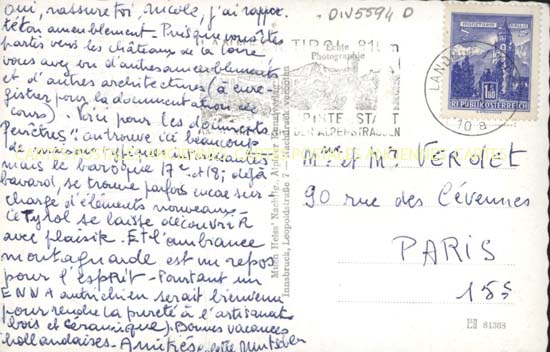 Oui, rassure toi, Nicole, j'ai rapporté
ton ameublement. Puisque vous êtes
partis vers les châteaux de la Loire
vous avez eu d'autres ameublements
et d'autres architectures (à enre-
gistrer pour la documentation de
cours). Voici pour les
fenêtres" : on trouve ici beaucoup
de maisons
mais le baroque 17e et 18e; déjà
bavard, se trouve parfois encore sur-
chargé d'éléments nouveaux.
Le Tyrol se laisse découvrir
avec plaisir. Et l'ambiance
montagnarde est un repos
pour l'esprit - Pourtant un
ENNA autrichien serait bienvenu
pour rendre la pureté à l'artisanat
(bois et céramique). Bonnes vacances
hollandaises. Amitiés
DIV5594 D
Echte
Photographie
TIROL 816 m
PISTE START
DER ALPENSTRASSEN
LANDECK
10 a
1.80
REPUBLIK ÖSTERREICH
Much Heiss' Nachflg. Alpiner Kunstverlag
Innsbruck, Leopoldstraße 7 - Nachdruck verboten
Mme et Mr VERDET
90 rue des Cévennes
PARIS
15e
81383